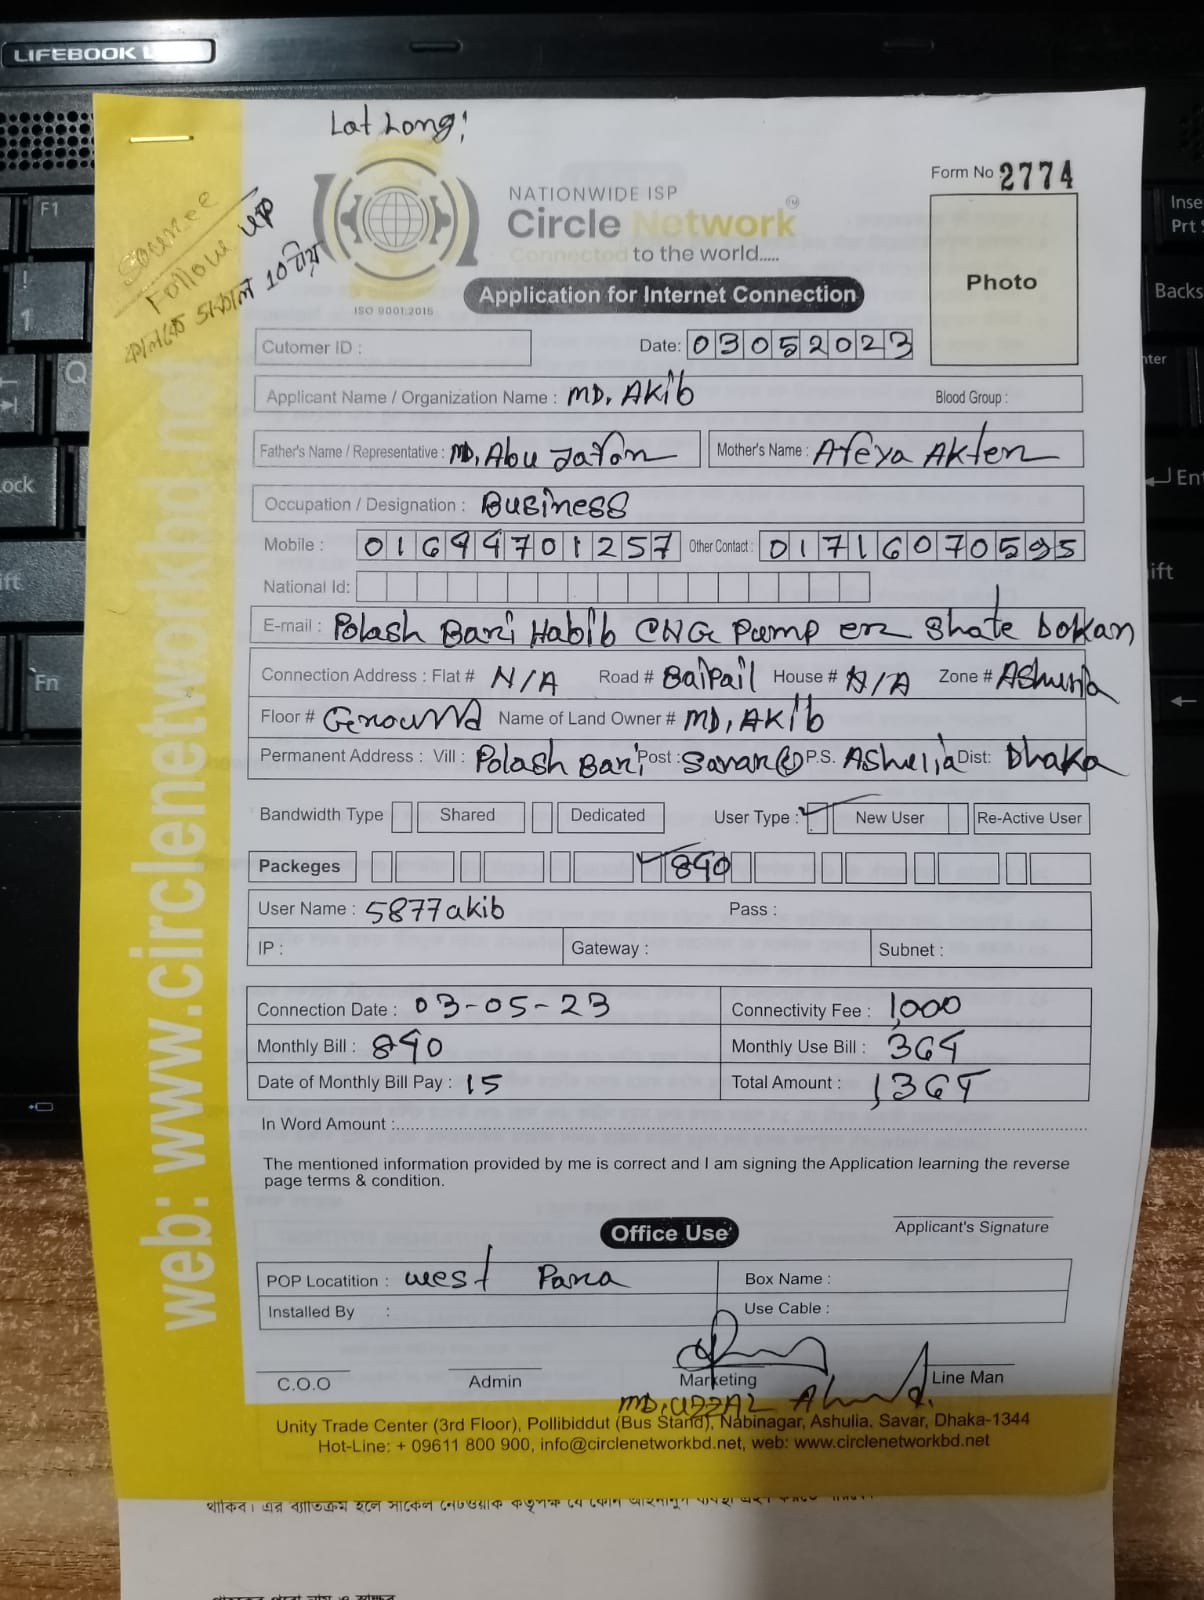 LIFEBOOK
Lat Long:
Form No 2774
Source
Follow up
কালকে সকাল 10 টায়
NATIONWIDE ISP
Circle Network
Connected to the world.....
ISO 9001:2015
Application for Internet Connection
Photo
Cutomer ID :
Date: 03052023
Applicant Name / Organization Name : MD. AKib
Blood Group :
Father's Name / Representative : MD, Abu
Mother's Name : Afeya AKter
Occupation / Designation : Business
Mobile : 01644701257 Other Contact : 01716070595
National Id:
E-mail : Polash Bari Habib CNG Pump er Shate Dokan
Connection Address : Flat # N/A Road # BaiPail House # N/A Zone # AShulia
Floor # Ground Name of Land Owner # MD, AKib
Permanent Address : Vill : Polash Bari Post : Savar P.S. AShulia Dist: Dhaka
Bandwidth Type Shared Dedicated User Type : New User Re-Active User
Packeges 840
User Name : 5877akib Pass :
IP : Gateway : Subnet :
Connection Date : 03-05-23 Connectivity Fee : 1,000
Monthly Bill : 840 Monthly Use Bill : 364
Date of Monthly Bill Pay : 15 Total Amount : 1,364
In Word Amount :
The mentioned information provided by me is correct and I am signing the Application learning the reverse
page terms & condition.
Applicant's Signature
Office Use
POP Locatition : west Para Box Name :
Installed By : Use Cable :
C.O.O Admin Marketing Line Man
MD. UZZAL Ahmed.
Unity Trade Center (3rd Floor), Pollibiddut (Bus Stand), Nabinagar, Ashulia. Savar, Dhaka-1344
Hot-Line: + 09611 800 900, info@circlenetworkbd.net, web: www.circlenetworkbd.net
web: www.circlenetworkbd.net